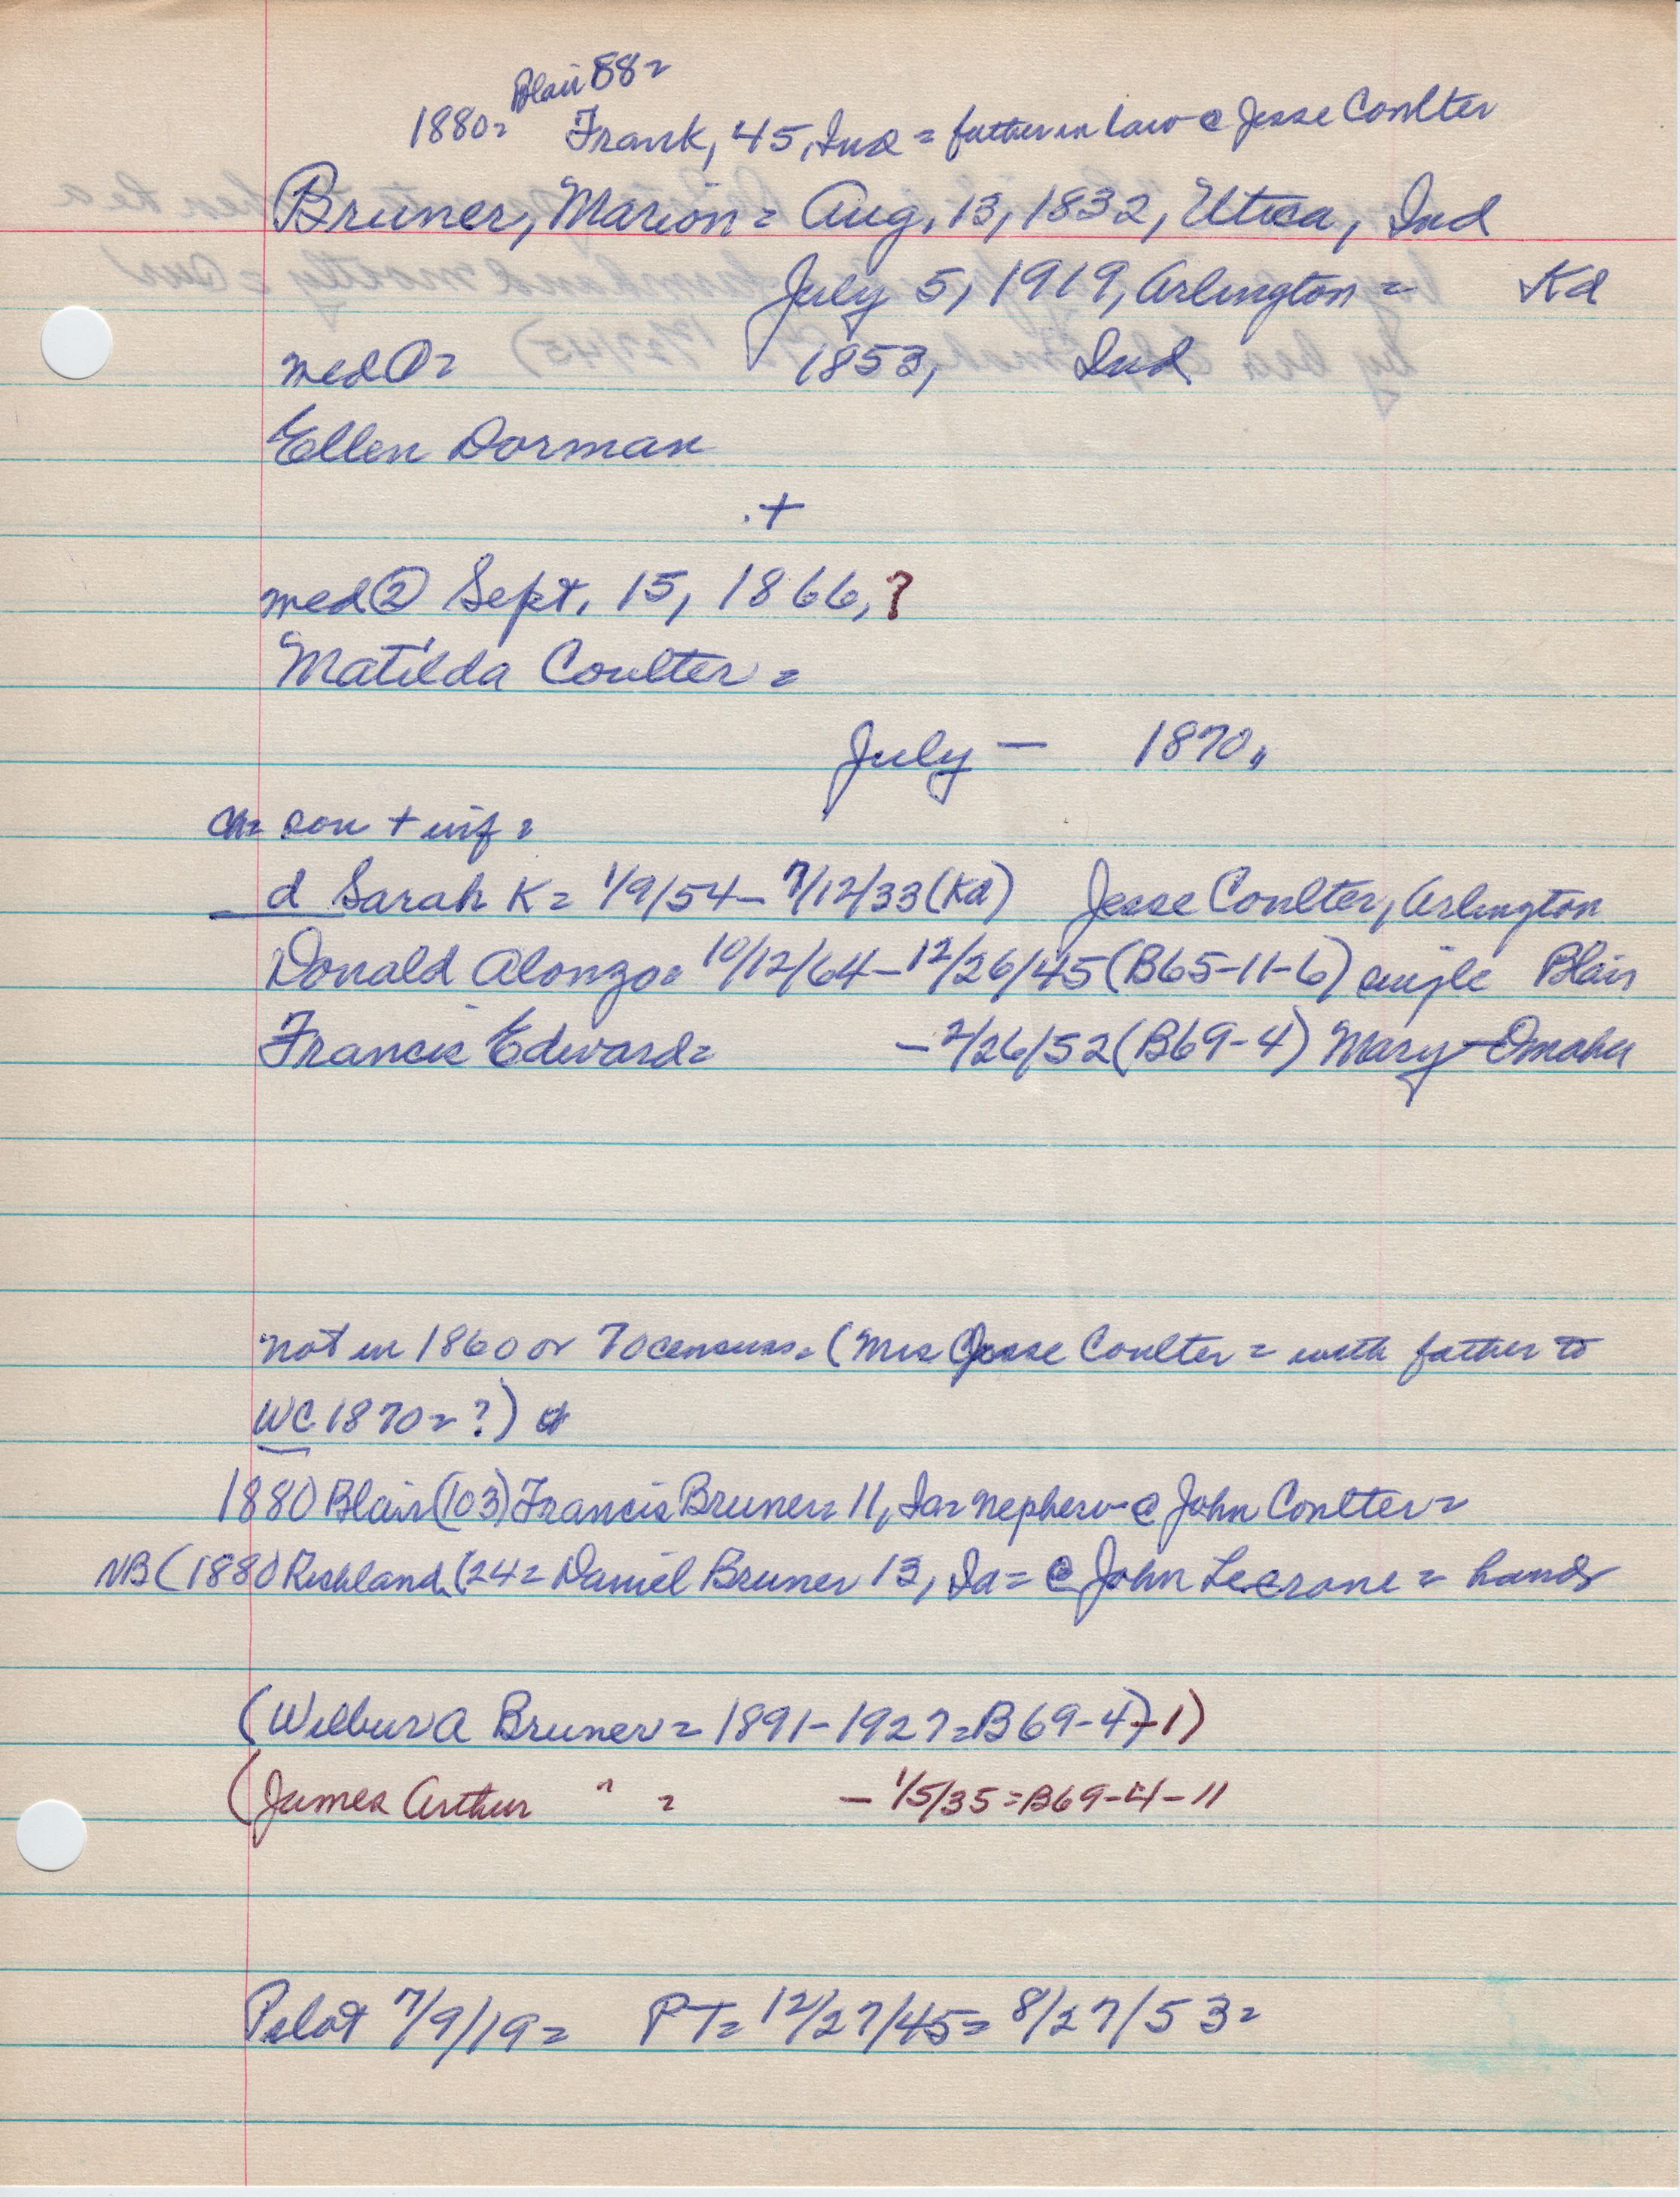 Blair 88=
1880= Frank, 45, Ind = father in law @ Jesse Coulter
Bruner, Marion = Aug. 13, 1832, Utica, Ind
July 5, 1919, Arlington = Kd
med ① = 1853, Ind
Ellen Dorman
+
med ② Sept. 15, 1866, ?
Matilda Coulter =
July — 1870,
ch= son + wif =
d Sarah K = 1/9/54 - 7/12/33 (Kd) Jesse Coulter, Arlington
Donald Alonzo = 10/12/64 - 12/26/45 (B65-11-6) single Blair
Francis Edward = - 2/26/52 (B69-4) Mary - Omaha
not in 1860 or 70 census = (Mrs Jesse Coulter = with father to
WC 1870 = ?)
1880 Blair (103) Francis Bruner = 11, Ia = nephew @ John Coulter =
NB (1880 Richland (24 = Daniel Bruner 13, Ia = @ John Lecrone = hands
(Wilbur A Bruner = 1891 - 1927 = B69-4)-1)
(James Arthur " = - 1/5/35 = B69-4-11
Pilot 7/9/19 = PT = 12/27/45 = 8/27/53 =